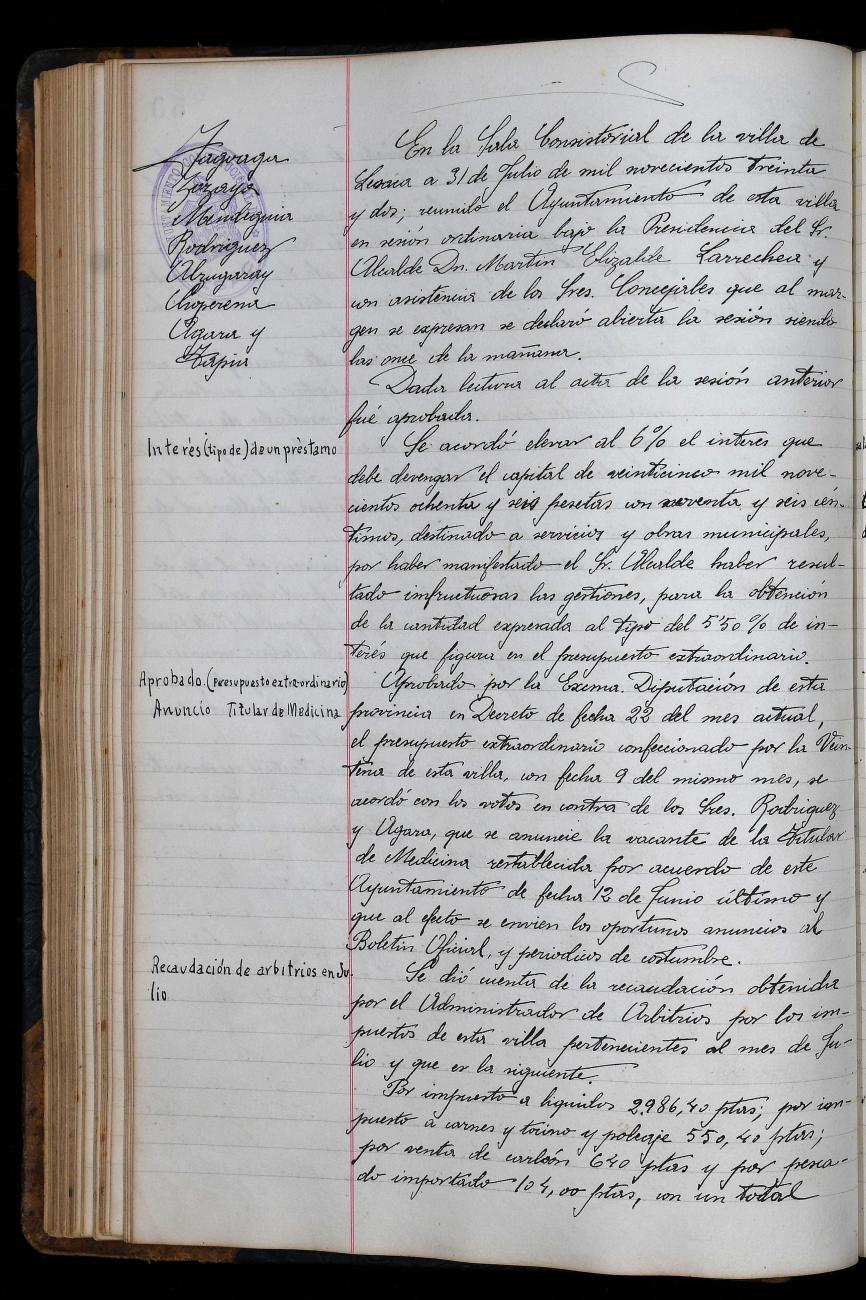 Zagoaga
Lozayo
Mendeguia
Rodriguez
Alzugaray
Choperena
Agara y
Tapia
En la Sala Consistorial de la villa de
Lesaca a 31 de Julio de mil novecientos treinta
y dos; reunido el Ayuntamiento de esta villa
en sesión ordinaria bajo la Presidencia del Sr.
Alcalde Dn. Martin Elizalde Larrechea y
con asistencia de los Sres. Concejales que al mar-
gen se expresan se declaró abierta la sesión siendo
las once de la mañana.
Dada lectura al acta de la sesión anterior
fué aprobada.
Interès (tipo de) de un prèstamo
Se acordó elevar al 6% el interes que
debe devengar el capital de veinticinco mil nove-
cientos ochenta y seis pesetas con noventa y seis cén-
timos, destinado a servicios y obras municipales,
por haber manifestado el Sr. Alcalde haber resul-
tado infructuosas las gestiones, para la obtención
de la cantidad expresada al tipo del 5'50% de in-
terés que figura en el presupuesto extraordinario.
Aprobado. (presupuesto extra-ordinario)
Anuncio Titular de Medicina
Aprobado por la Exema. Diputación de esta
provincia en Decreto de fecha 22 del mes actual,
el presupuesto extraordinario confeccionado por la Vein-
tena de esta villa, con fecha 9 del mismo mes, se
acordó con los votos en contra de los Sres. Rodriguez
y Agara, que se anuncie la vacante de la Titular
de Medicina restablecida por acuerdo de este
Ayuntamiento de fecha 12 de Junio último y
que al efecto se envien los oportunos anuncios al
Boletin Oficial, y periodicos de costumbre.
Recaudación de arbitrios en Ju-
lio
Se dió cuenta de la recaudación obtenida
por el Administrador de Arbitrios por los im-
puestos de esta villa pertenecientes al mes de Ju-
lio y que es la siguiente.
Por impuesto a liquidos 2.986,40 ptas; por im-
puesto a carnes y tocino y poleaje 550,40 ptas;
por venta de carbón 640 ptas y por pesca-
do importado 104,00 ptas, con un total